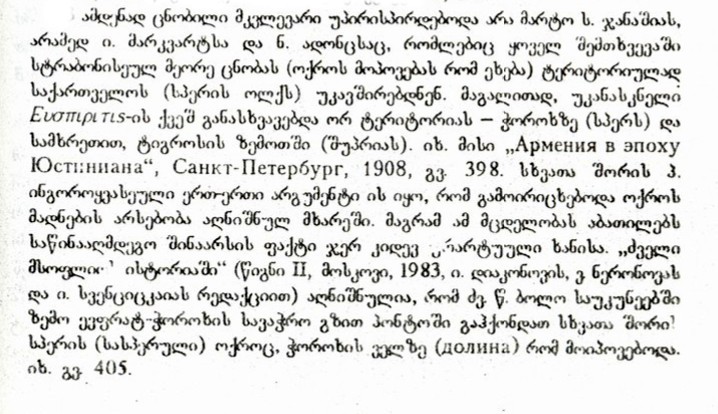 ამდენად ცნობილი მკვლევარი უპირისპირდებოდა არა მარტო ს. ჯანაშიას,
არამედ ი. მარკვარტსა და ნ. ადონცსაც, რომლებიც ყოველ შემთხვევაში
სტრაბონისეულ მეორე ცნობას (ოქროს მოპოვებას რომ ეხება) ტერიტორიულად
საქართველოს (სპერის ოლქს) უკავშირებდნენ. მაგალითად, უკანასკნელი
-ის ქვეშ განასხვავებდა ორ ტერიტორიას – ჭოროხზე (სპერს) და
სამხრეთით, ტიგროსის ზემოთში (შუპრიას). იხ. მისი „Армения в эпоху
Юстиниана“, Санкт-Петербург, 1908, გვ. 398. სხვათა შორის პ.
ინგოროყვასეული ერთ-ერთი არგუმენტი ის იყო, რომ გამოირიცხებოდა ოქროს
მადნების არსებობა აღნიშნულ მხარეში. მაგრამ ამ მცდელობას აბათილებს
საწინააღმდეგო შინაარსის ფაქტი ჯერ კიდევ ურარტუული ხანისა. „ძველი
მსოფლიო ისტორიაში“ (წიგნი II, მოსკოვი, 1983, ი. დიაკონოვის, ვ. ნერონოვას
და ი. სვენციცკაიას რედაქციით) აღნიშნულია, რომ ძვ. წ. ბოლო საუკუნეებში
ზემო ევფრატ-ჭოროხის სავაჭრო გზით პონტოში გაჰქონდათ სხვათა შორის
სპერის (სასპერული) ოქროც, ჭოროხის ველზე (долина) რომ მოიპოვებოდა.
იხ. გვ. 405.